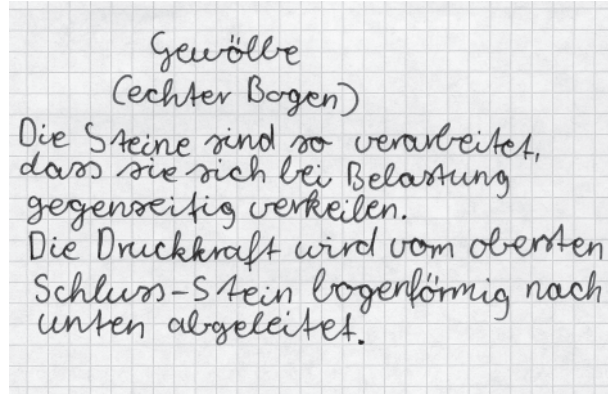 Gewölbe
(echter Bogen)
Die Steine sind so verarbeitet,
dass sie sich bei Belastung
gegenseitig verkeilen.
Die Druckkraft wird vom obersten
Schluss-Stein bogenförmig nach
unten abgeleitet.